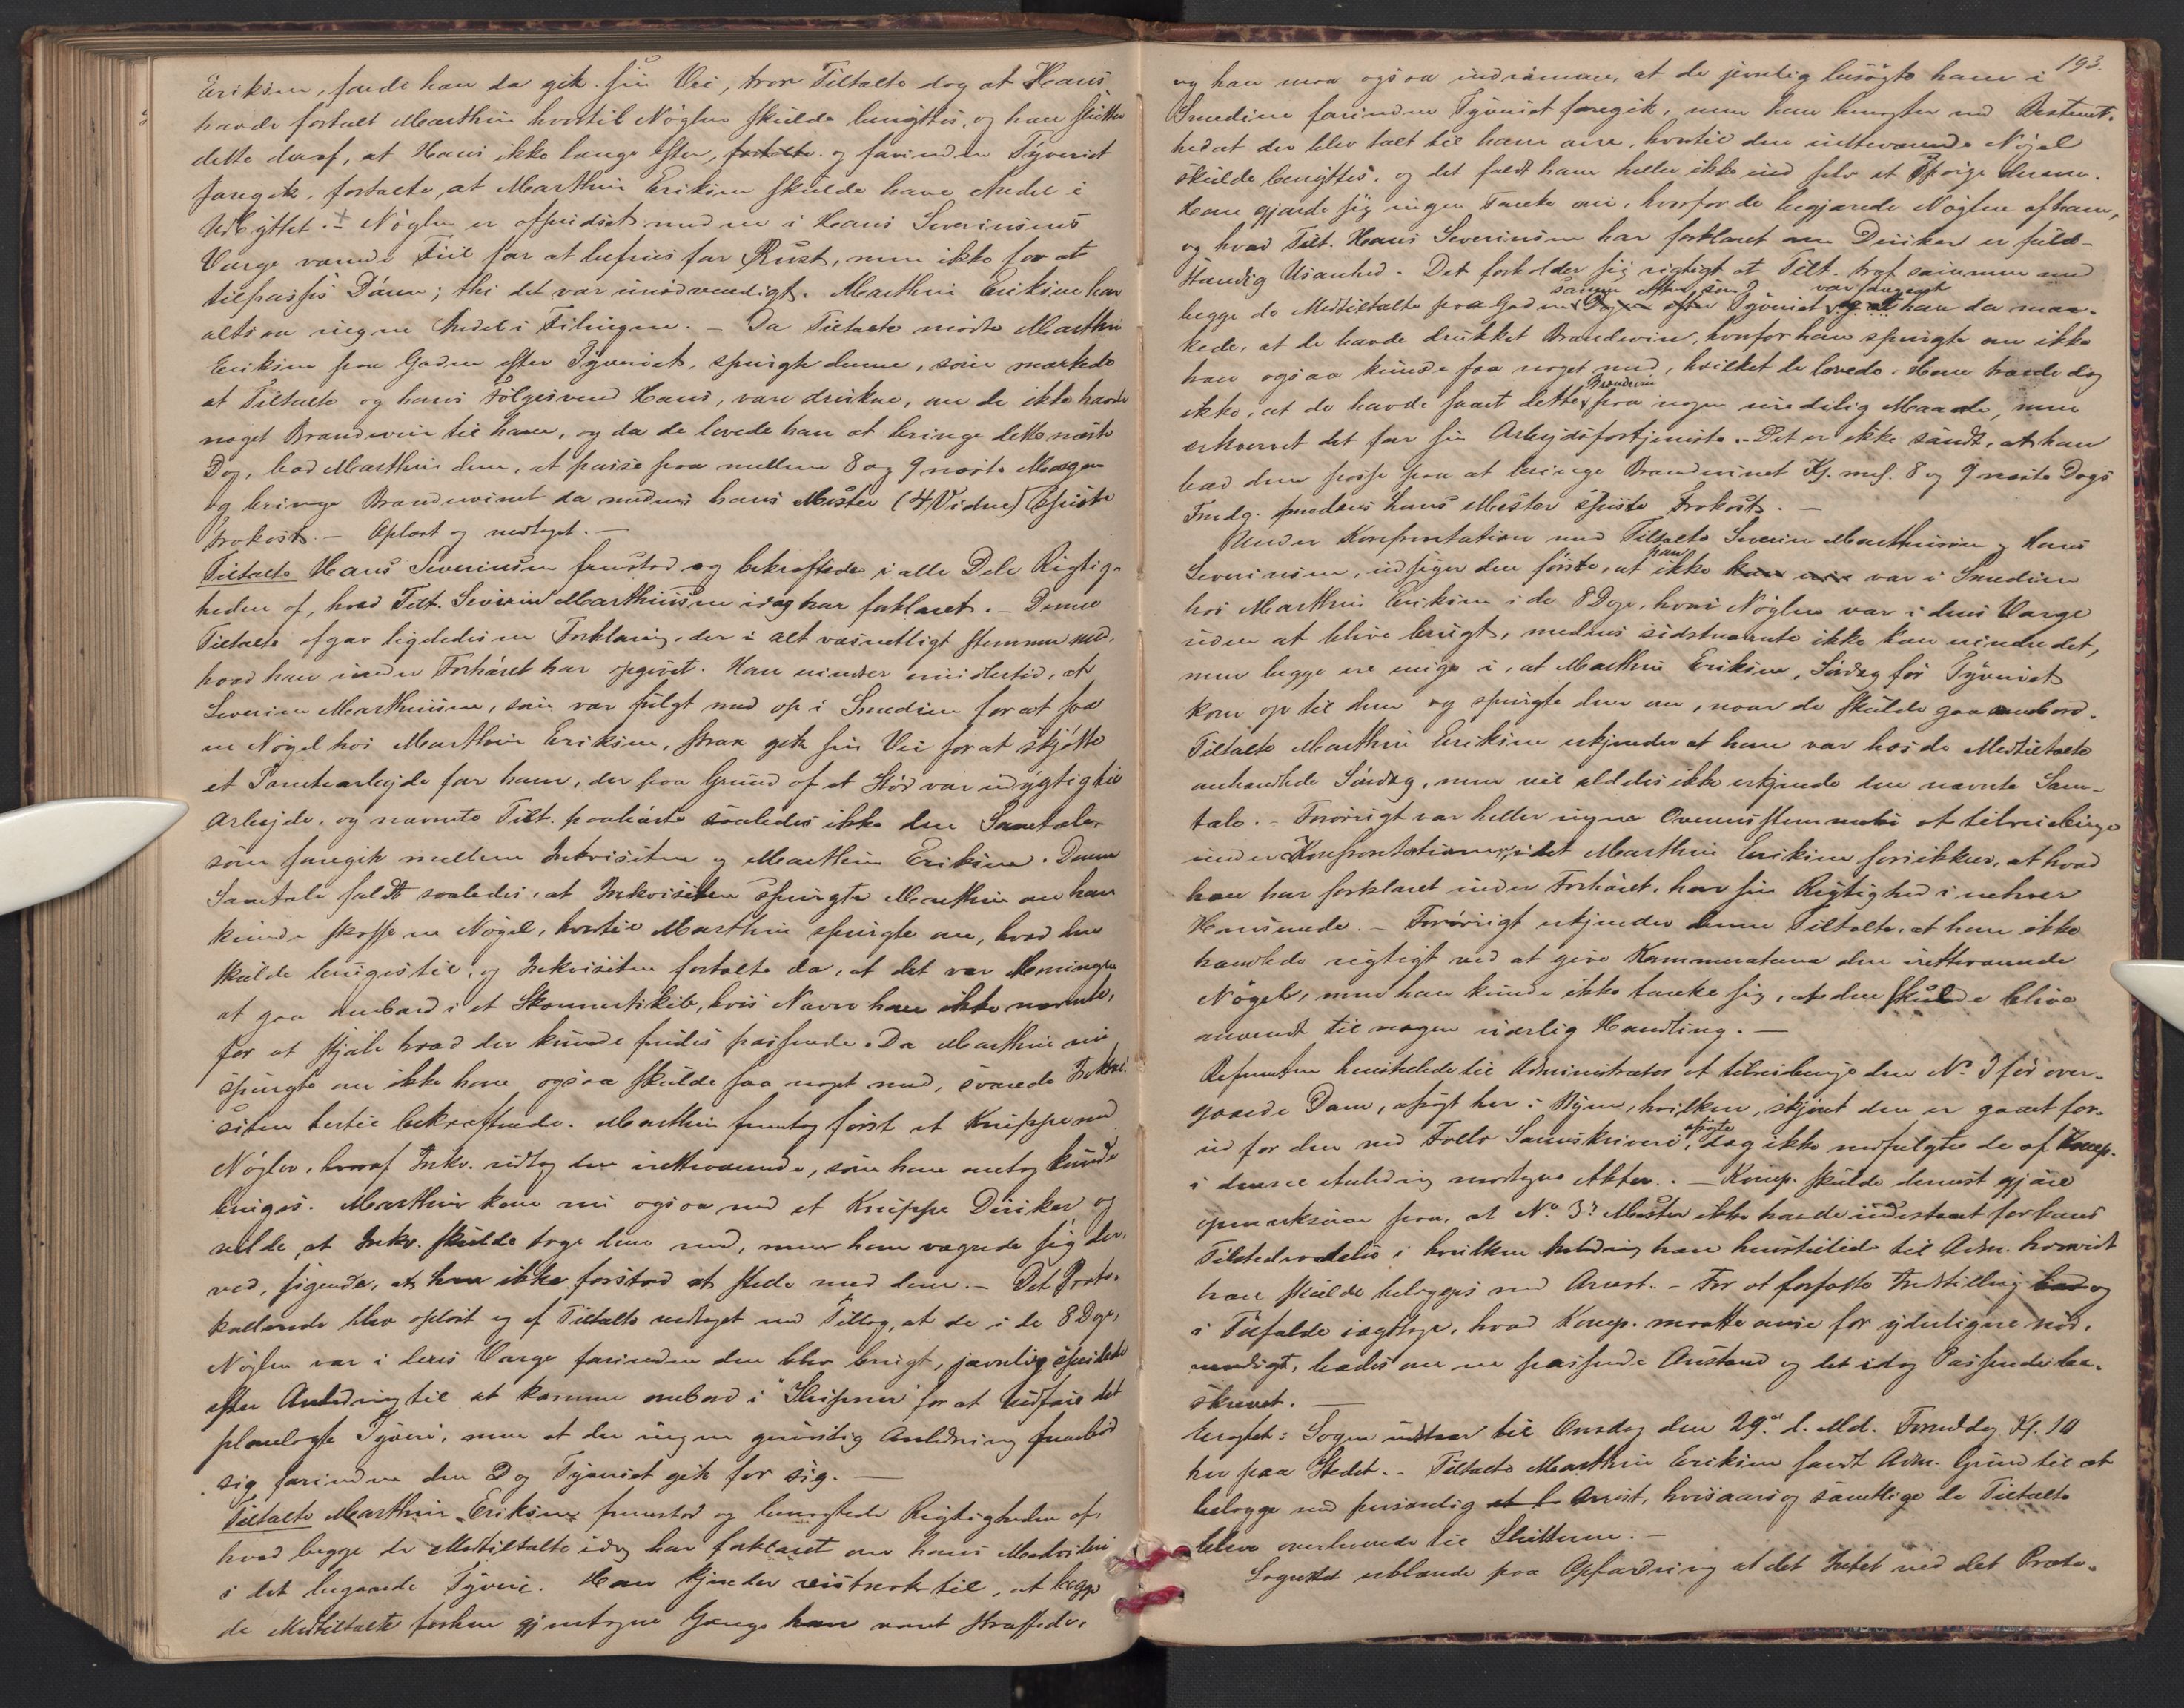 Eriksen, fordi han da gik sin Vei, tror Tiltalte dog at Hans
havde fortalt Marthin hvortil Nöglen skulde benyttes, og han slutter
dette deraf, at Hans ikke længe efter, fortalte og forinden Tyveriet
foregik, fortalte, at Marthin Eriksen skulde have Andel i
Udbyttet. Nöglen er affiidset medens i Hans Severinsens
Værge værende Fiil for at befries for Rust, men ikke for at
tilpasses Dören; thi det var unödvendigt. Marthin Eriksen har
altsaa ingen Andel i Filingen. - Da Tiltalte mödte Marthin
Eriksen paa Gaden efter Tyveriet, spurgte denne, som mærkede
at Tiltalte og hans Fölgesvend Hans, vare drukne, om de ikke havde
noget Brændeviin til ham, og da de lovede ham at bringe dette næste
Dag, bad Marthin dem, at passe paa mellem 8 og 9 næste Morgen
og bringe Brændevinet da medens hans Mester (4 Vidne) spiste
Frokost. - Oplæst og vedtaget. -
Tiltalte Hans Severinsen fremstod og bekræftede i alle Dele Rigtig-
heden af, hvad Tilt. Severin Marthinsen idag har forklaret. - Denne
Tiltalte afgav ligeledes en Forklaring, der i alt væsentligt stemmer med,
hvad han under Forhöret har opgivet. Han mindes imidlertid, at
Severin Marthinsen, som var fulgt med op i Smedien for at faa
en Nögel hos Marthin Eriksen, strax gik sin Vei for at skjötte
et Arbejde for ham, der paa Grund af et Stöd var udygtig til
Arbejde, og nævnte Tilt. paahörte saaledes ikke den Samtale,
som foregik mellem Inkvisiten og Marthin Eriksen. Denne
Samtale faldt saaledes, at Inkvisiten spurgte Marthin om han
kunde skaffe en Nögel, hvortil Marthin spurgte om, hvad den
skulde bruges til, og Inkvisiten fortalte da, at det var Meningen
at gaa ombord i et Skonnertskib, hvis Navn han ikke nævnte,
for at stjæle hvad der kunde findes passende. Da Marthin nu
spurgte om ikke han ogsaa skulde faa noget med, svarede Inkvi-
siten hertil bekræftende. Marthin fremtog först et Knippe med
Nögler, hvoraf Inkv. udtog den iretteværende, som han antog kunde
bruges. Marthin kom nu ogsaa med et Knippe Dirikker og
vilde, at Inkv. skulde tage dem med, men han vægrede sig der-
ved, sigende, at han ikke forstod at stelle med dem. - Det Proto-
kollerede blev oplæst og af Tiltalte vedtaget med Tillæg, at de i de 8 Dage,
Nöglen var i deres Værge forinden den blev brugt, jævnlig speidede
efter Anledning til at komme ombord i "Sleipner" for at udföre det
planlagte Tyveri, men at der ingen gunstig Anledning frembød
sig forinden den Dag Tyveriet gik for sig. -
Tiltalte Marthin Eriksen fremstod og benægtede Rigtigheden af,
hvad begge de Medtiltalte idag har forklaret om hans Medviden
i det begaaede Tyveri. Han kjender vistnok til, at begge
de Medtiltalte forhen gjentagne Gange have været straffede,
193.
og han maa ogsaa indrömme, at de jevnlig besögte ham i
Smedien forinden Tyveriet foregik, men han benægter med Bestemt-
hed at der blev talt til ham om, hvortil den iretteværende Nögel
skulde benyttes, og det faldt ham heller ikke ind selv at spörge derom.
Han gjorde sig ingen Tanke om, hvorfor de begjærede Nöglen af ham,
og hvad Tilt. Hans Severinsen har forklaret om Dirikker er fuld-
stændig Usandhed. - Det forholder sig rigtigt at Tilt. traf sammen med
samme Aften som var begaaet
begge de Medtiltalte paa Gaden Dagen efter Tyveriet og at han da mær-
kede, at de havde drukket Brændeviin, hvorfor han spurgte om ikke
han ogsaa kunde faa noget med, hvilket de lovede. Han troede dog
Brændeviin
ikke, at de havde faaet dette paa nogen uredelig Maade, men
erhvervet det for sin Arbejdsfortjeneste. - Det er ikke sandt, at han
bad dem passe paa at bringe Brændevinet Kl. mel. 8 og 9 næste Dags
Frmdg. medens hans Mester spiste Frokost. -
Under Konfrontation med Tiltalte Severin Marthinsen og Hans
han
Severinsen, udsiger den förste, at ikke han var i Smedien
hos Marthin Eriksen i de 8 Dage, hvori Nöglen var i dens Værge
uden at blive brugt, medens sidstnævnte ikke kan mindes det,
men begge ere enige i, at Marthin Eriksen, Söndag för Tyveriet
kom op til dem og spurgte dem om, naar de skulde gaa ombord.
Tiltalte Marthin Eriksen erkjender at han var hos de Medtiltalte
omhandlede Söndag, men vil aldeles ikke erkjende den nævnte Sam-
tale. - Forövrigt var heller ingen Overensstemmelse at tilveiebringe
under Konfrontationen, idet Marthin Eriksen forsikkrer, at hvad
han har forklaret under Forhöret, har sin Rigtighed i enhver
Henseende. - Forövrigt erkjender denne Tiltalte, at han ikke
handlede rigtigt ved at give Kammeraterne den iretteværende
Nögel, men han kunde ikke tænke sig, at den skulde blive
anvendt til nogen uærlig Handling. -
Referenten henstillede til Administrator at tilveiebringe den No. 3 för over-
gaaede Dom, afsagt her i Byen, hvilken, skjönt den er gaaet for-
afsagte
ud for den ved Follo Sorenskriveri, dog ikke medfulgte de af Komp.
i denne Anledning modtagne Akter. - Komp. skulde dernæst gjöre
opmærksom paa, at No. 3s Mester ikke havde indestaaet for hans
Tilstedeværelse i hvilken Anledning han henstillede til Adm. hvorvidt
han skulde belægges med Arrest. - For at forfatte Indstilling og
i Tilfælde iagttage, hvad Komp. maatte anse for yderligere nöd-
vendigt, bades om en passende Anstand og det idag Passerede be-
skrevet. -
Eragtet: Sagen udstaar til Onsdag den 29de d. Md. Formiddag Kl. 10
her paa Stedet. - Tiltalte Marthin Eriksen fandt Adm. Grund til at
belægge med personlig Arrest, og samtlige de Tiltalte
bleve overleverede til Slutterne. -
Lagretten erklærede paa Opfordring at det Intet ved det Proto-